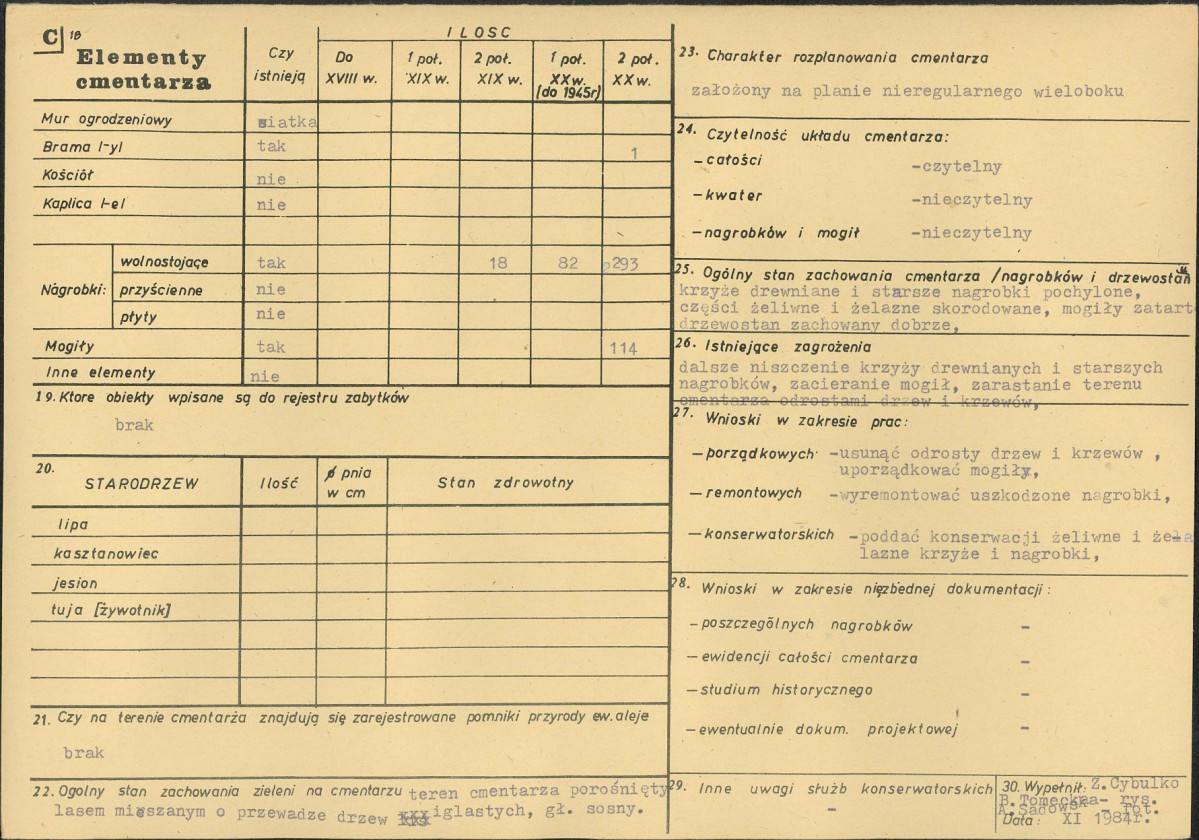 C 18
Elementy
cmentarza
Czy
istnieją
ILOSC
Do
XVIII w.
1 poł.
XIX w.
2 poł.
XIX w.
1 poł.
XX w.
(do 1945r)
2 poł.
XX w.
Mur ogrodzeniowy siatka
Brama /-y/ tak 1
Kościół nie
Kaplica /-e/ nie
Nagrobki:
wolnostojące tak 18 82 293
przyścienne nie
płyty nie
Mogiły tak 114
Inne elementy nie
19. Ktore obiekty wpisane są do rejestru zabytków
brak
20.
STARODRZEW
Ilość
ø pnia
w cm
Stan zdrowotny
lipa
kasztanowiec
jesion
tuja [żywotnik]
21. Czy na terenie cmentarża znajdują się zarejestrowane pomniki przyrody ew. aleje
brak
22. Ogolny stan zachowania zieleni na cmentarzu teren cmentarza porośnięty
lasem mieszanym o przewadze drzew xxx iglastych, gł. sosny.
23. Charakter rozplanowania cmentarza
założony na planie nieregularnego wieloboku
24. Czytelność układu cmentarza:
- całości -czytelny
- kwater -nieczytelny
- nagrobków i mogił -nieczytelny
25. Ogólny stan zachowania cmentarza /nagrobków i drzewostan
krzyże drewniane i starsze nagrobki pochylone,
części żeliwne i żelazne skorodowane, mogiły zatart
drzewostan zachowany dobrze,
26. Istniejące zagrożenia
dalsze niszczenie krzyży drewnianych i starszych
nagrobków, zacieranie mogił, zarastanie terenu
cmentarza odrostami drzew i krzewów,
27. Wnioski w zakresie prac:
- porządkowych -usunąć odrosty drzew i krzewów ,
uporządkować mogiły,
- remontowych -wyremontować uszkodzone nagrobki,
- konserwatorskich -poddać konserwacji żeliwne i żela
lazne krzyże i nagrobki,
28. Wnioski w zakresie niezbednej dokumentacji:
- poszczególnych nagrobków -
- ewidencji całości cmentarza -
- studium historycznego -
- ewentualnie dokum. projektowej -
29. Inne uwagi służb konserwatorskich
-
30. Wypełnił: Z.Cybulko
B.Tomecka- rys.
A.Sadowska - fot.
Data: XI 1984r.